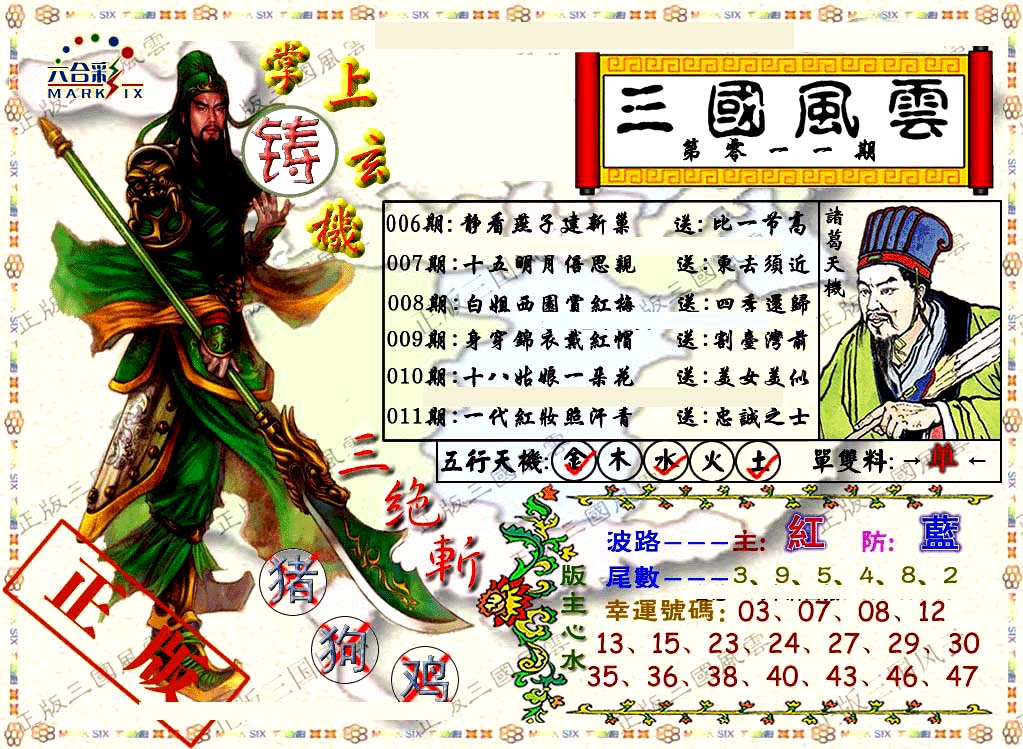 六合彩
MARK SIX
掌上玄機
铸
三國風雲
第零一一期
006期:静看燕子建新巢 送:比一节高
007期:十五明月倍思親 送:東去須近
008期:白姐西園賞紅梅 送:四季還歸
009期:身穿錦衣戴紅帽 送:割臺灣前
010期:十八姑娘一朵花 送:美女美似
011期:一代紅妝照汗青 送:忠誠之士
諸葛天機
五行天機:金木水火土 單雙料:→单←
三絕斬
猪
狗
鸡
正版
版主心水
波路———主:紅 防:藍
尾數———3、9、5、4、8、2
幸運號碼:03、07、08、12
13、15、23、24、27、29、30
35、36、38、40、43、46、47
正版三國風雲